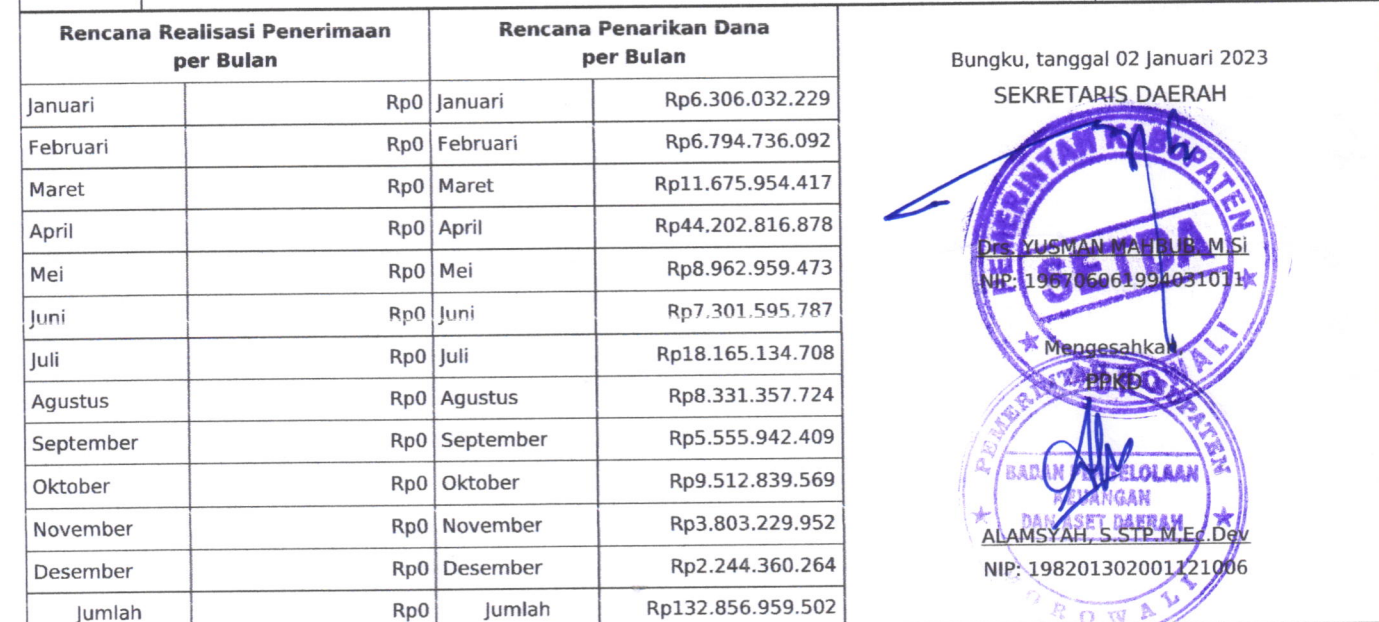 Rencana Realisasi Penerimaan
per Bulan
Rencana Penarikan Dana
per Bulan
Januari Rp0 Januari Rp6.306.032.229
Februari Rp0 Februari Rp6.794.736.092
Maret Rp0 Maret Rp11.675.954.417
April Rp0 April Rp44.202.816.878
Mei Rp0 Mei Rp8.962.959.473
Juni Rp0 Juni Rp7.301.595.787
Juli Rp0 Juli Rp18.165.134.708
Agustus Rp0 Agustus Rp8.331.357.724
September Rp0 September Rp5.555.942.409
Oktober Rp0 Oktober Rp9.512.839.569
November Rp0 November Rp3.803.229.952
Desember Rp0 Desember Rp2.244.360.264
Jumlah Rp0 Jumlah Rp132.856.959.502
Bungku, tanggal 02 Januari 2023
SEKRETARIS DAERAH
PEMERINTAH KABUPATEN
SETDA
Drs. YUSMAN MAHBUB, M.Si
NIP: 196706061994031011
Mengesahkan,
PPKD
PEMERINTAH KABUPATEN
BADAN PENGELOLAAN
KEUANGAN
DAN ASET DAERAH
ALAMSYAH, S.STP.M,Ec.Dev
NIP: 198201302001121006
MOROWALI